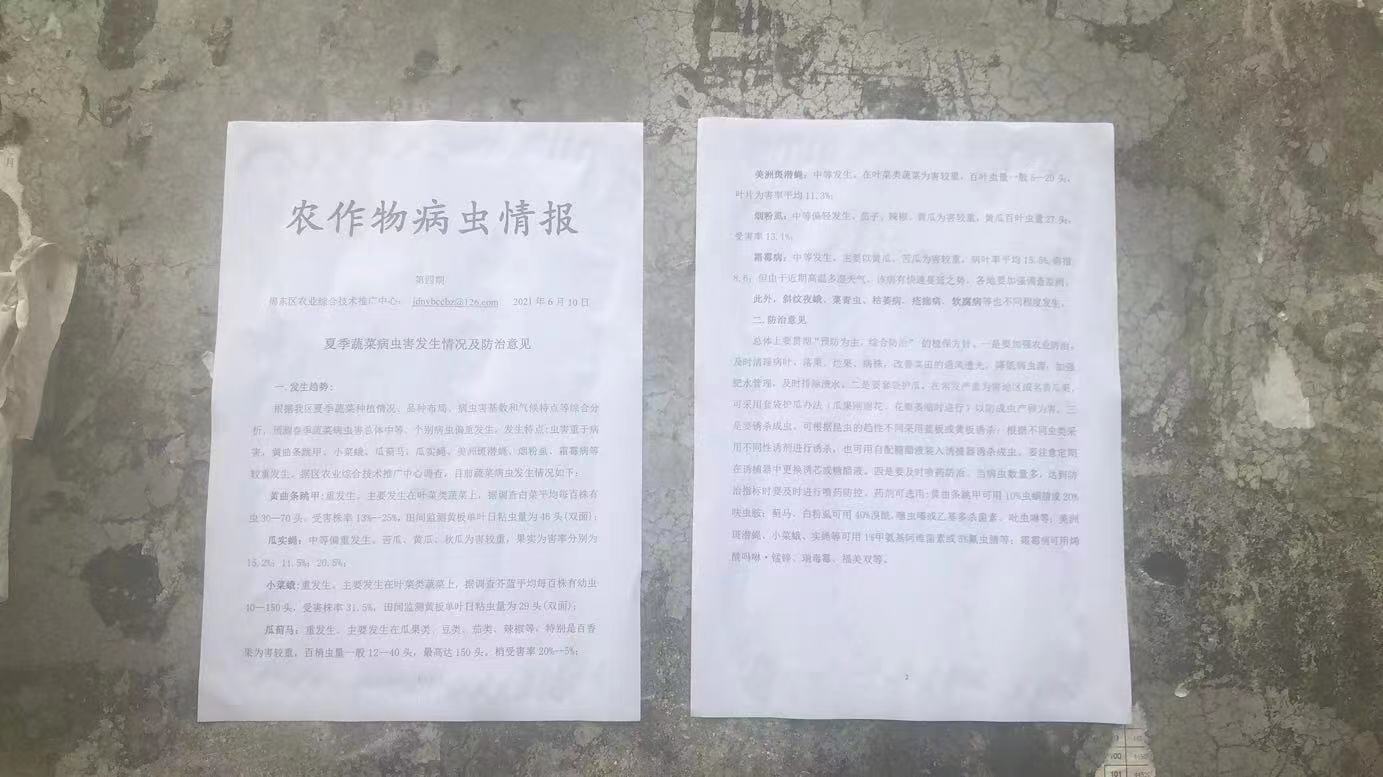 农作物病虫情报
第四期
揭东区农业综合技术推广中心: jdnybccbz@126.com 2021年6月10日
夏季蔬菜病虫害发生情况及防治意见
一.发生趋势:
根据我区夏季蔬菜种植情况、品种布局、病虫害基数和气候特点等综合分
析,预测春季蔬菜病虫害总体中等、个别病虫偏重发生。发生特点:虫害重于病
害,黄曲条跳甲、小菜蛾、瓜蓟马、瓜实蝇、美洲斑潜蝇、烟粉虱、霜霉病等
较重发生。据区农业综合技术推广中心调查,目前蔬菜病虫发生情况如下:
黄曲条跳甲:重发生。主要发生在叶菜类蔬菜上,据调查白菜平均每百株有
虫30—70头。受害株率13%--25%,田间监测黄板单叶日粘虫量为46头(双面);
瓜实蝇:中等偏重发生。苦瓜、黄瓜、秋瓜为害较重,果实为害率分别为
15.2%;11.5%;20.5%;
小菜蛾:重发生。主要发生在叶菜类蔬菜上,据调查芥蓝平均每百株有幼虫
40—150头,受害株率31.5%,田间监测黄板单叶日粘虫量为29头(双面);
瓜蓟马:重发生。主要发生在瓜果类、豆类、茄类、辣椒等,特别是百香
果为害较重,百梢虫量一般12—40头,最高达150头。梢受害率20%--5%;
美洲斑潜蝇:中等发生。在叶菜类蔬菜为害较重,百叶虫量一般5—20头,
叶片为害率平均11.3%;
烟粉虱:中等偏轻发生。茄子、辣椒、黄瓜为害较重,黄瓜百叶虫量27头,
受害率13.1%;
霜霉病:中等发生。主要以黄瓜、苦瓜为害较重,病叶率平均15.5%,病指
8.6;但由于近期高温多湿天气,该病有快速蔓延之势,各地要加强调查监测。
此外,斜纹夜蛾、菜青虫、枯萎病、疮痂病、软腐病等也不同程度发生。
二.防治意见
总体上要贯彻"预防为主,综合防治"的植保方针。一是要加强农业防治。
及时清理病叶、落果、烂果、病株,改善菜田的通风透光,降低病虫源;加强
肥水管理,及时排除渍水。二是要套袋护瓜。在常发严重为害地区或名贵瓜果,
可采用套袋护瓜办法(瓜果刚谢花、花瓣萎缩时进行)以防成虫产卵为害。三
是要诱杀成虫。可根据昆虫的趋性不同采用蓝板或黄板诱杀;根据不同虫类采
用不同性诱剂进行诱杀,也可用自配糖醋液装入诱捕器诱杀成虫。要注意定期
在诱捕器中更换诱芯或糖醋液。四是要及时喷药防治。当病虫数量多,达到防
治指标时要及时进行喷药防控。药剂可选用:黄曲条跳甲可用10%虫螨腈或20%
呋虫胺;蓟马、白粉虱可用40%溴酰.噻虫嗪或乙基多杀菌素、吡虫啉等;美洲
斑潜蝇、小菜蛾、实蝇等可用1%甲氨基阿维菌素或5%氟虫腈等;霜霉病可用烯
酰吗啉·锰锌、瑞毒霉、福美双等。
2